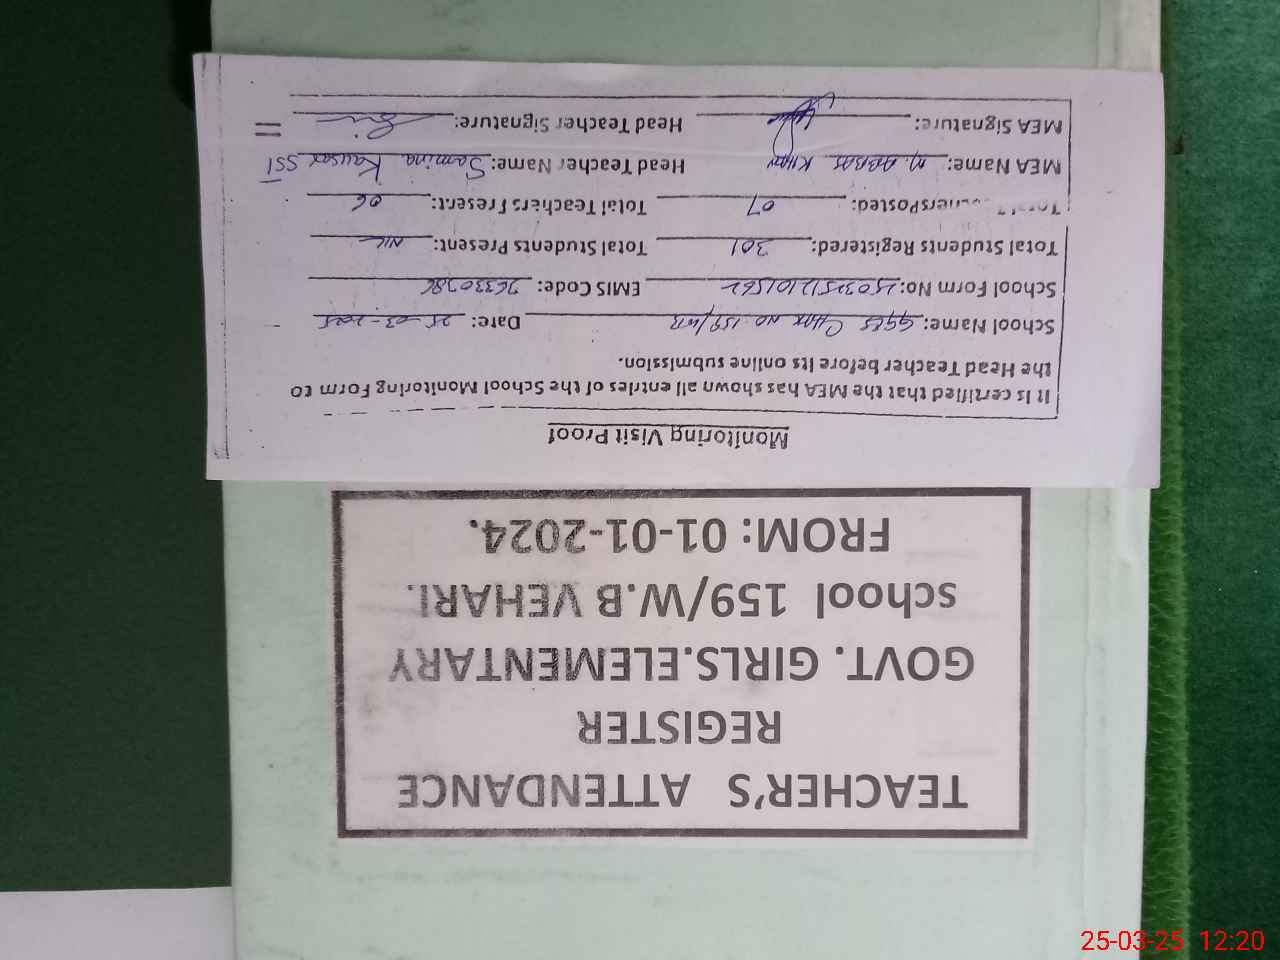 Monitoring Visit Proof
It is certified that the MEA has shown all entries of the School Monitoring Form to
the Head Teacher before its online submission.
School Name: GGES CHAK NO 159/WB Date: 25-03-2025
School Form No: EMIS Code:
Total Students Registered: 301 Total Students Present: NIL
Posted: 07 Total Teachers Present: 06
MEA Name: M. ABBAS KHAN Head Teacher Name: Samina Kausar SST
MEA Signature: Head Teacher Signature:
TEACHER'S ATTENDANCE
REGISTER
GOVT. GIRLS.ELEMENTARY
school 159/W.B VEHARI.
FROM: 01-01-2024.
25-03-25 12:20